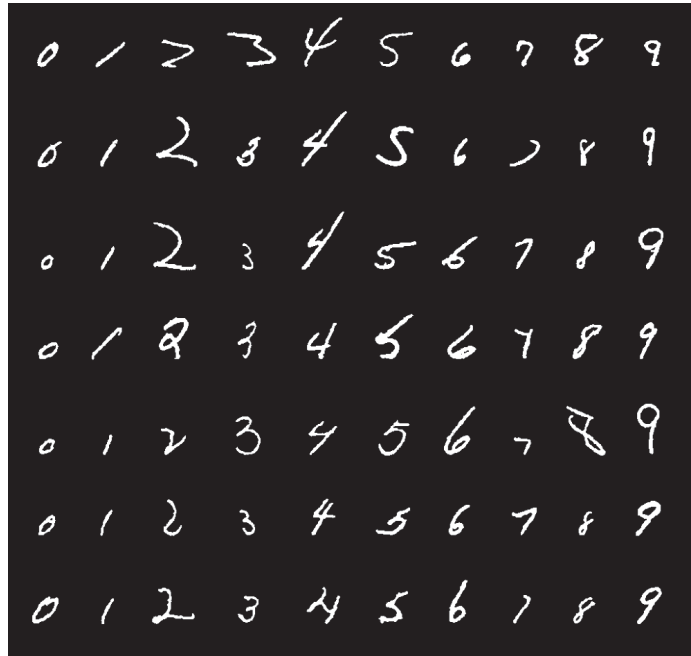 0 1 2 3 4 5 6 7 8 9
0 1 2 3 4 5 6 7 8 9
0 1 2 3 4 5 6 7 8 9
0 1 2 3 4 5 6 7 8 9
0 1 2 3 4 5 6 7 8 9
0 1 2 3 4 5 6 7 8 9
0 1 2 3 4 5 6 7 8 9